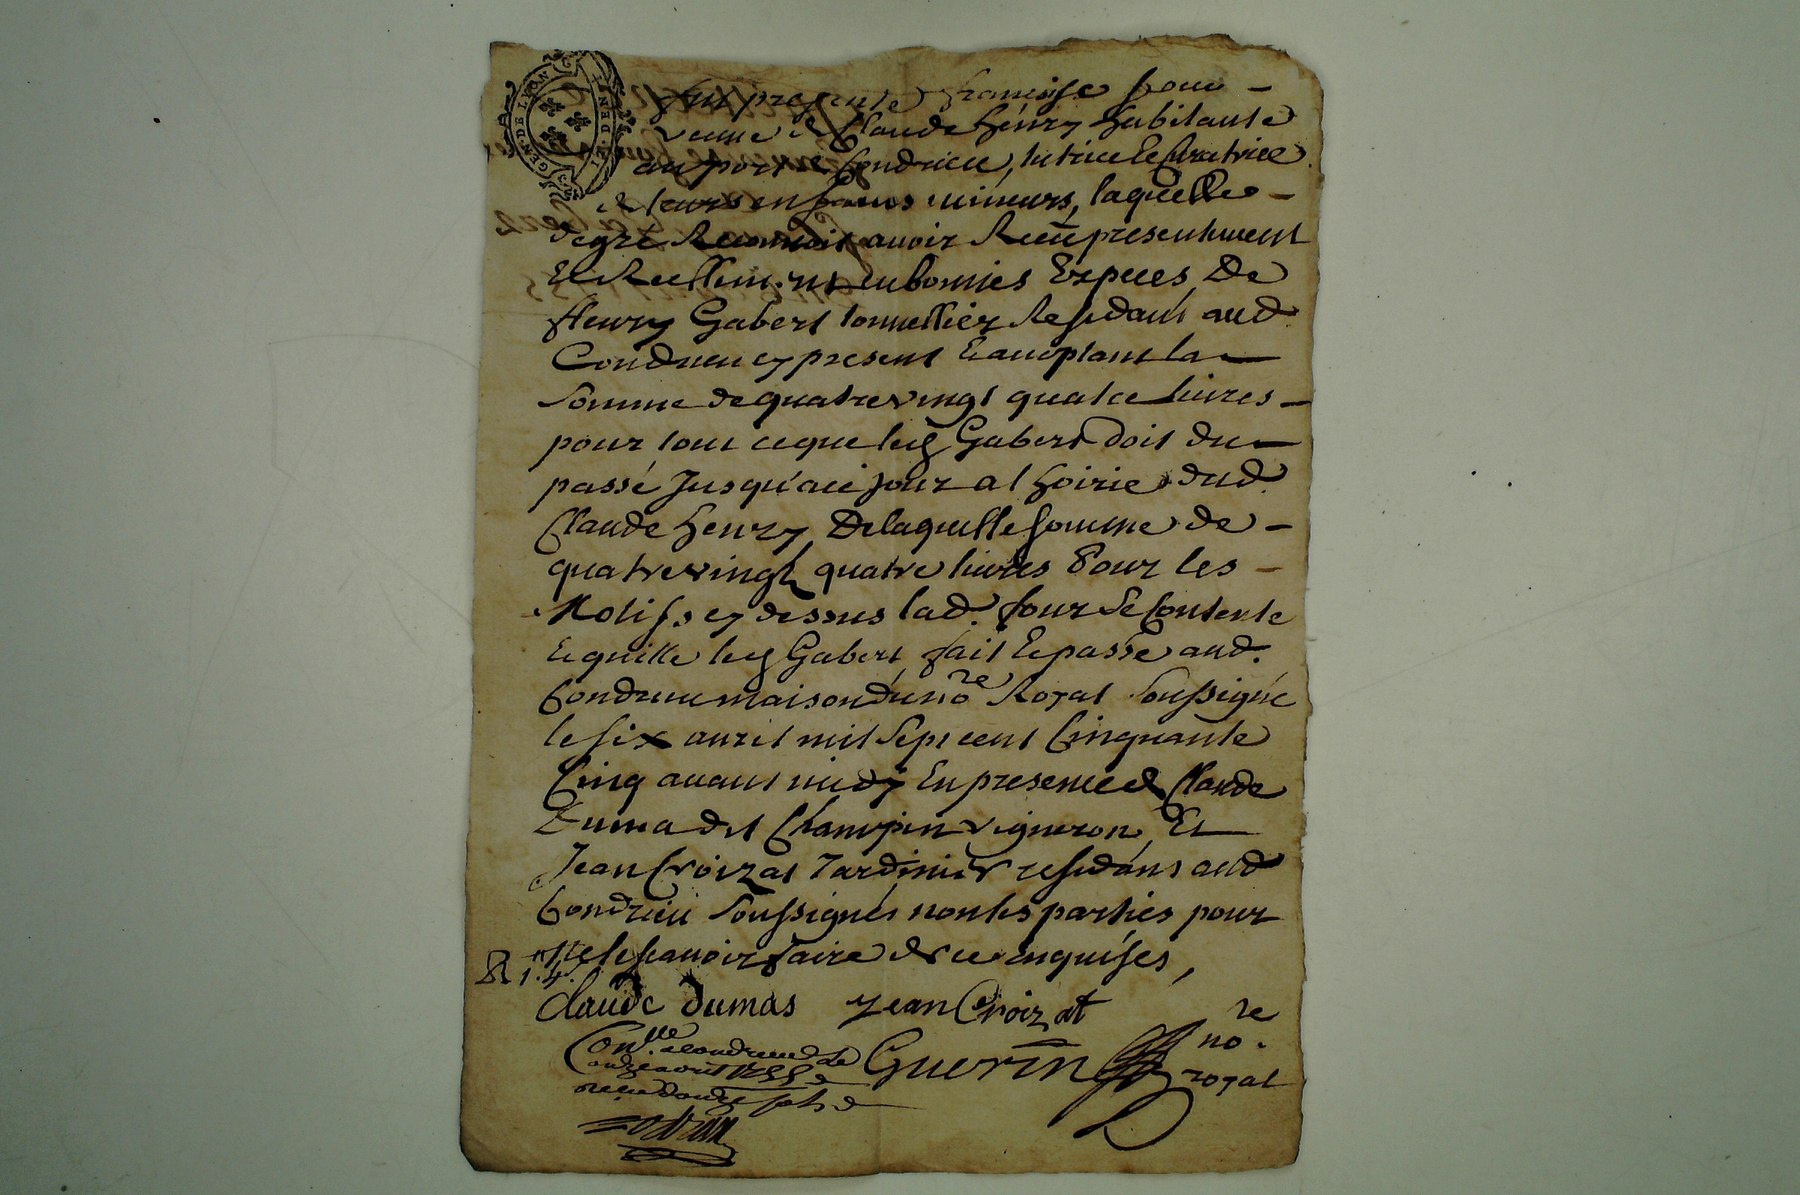 GEN. DE LYON
fut presente françoise four
veuve de Claude henry habitante
au port de Condrieu, tutrice et Curatrice
de leurs enfans mineurs, laquelle
degré Reconnoit avoir Receu presentement
Et Reellem.nt en bonnes Especes De
fleury Gabert tonnellier Residant aud.
Condrieu cy present Eacceptant la
Somme de quatre vingt quatre livres
pour tout ceque led Gabert doit du
passé Jusqu'a ce jour a l hoirie dud.
Claude henry, De laquelle somme de
quatre vingt quatre livres Pour les
Motifs cy dessus lad. four Se Contente
Et quitte led Gabert, fait Et passé aud.
Condrieu maison du no.re Royal Soussigné
le six avril mil Sept cent Cinquante
Cinq avant midy En presence de Claude
Duma dit Champin vigneron, Et
Jean Croizat Jardinier residans aud
Condrieu Soussignés non les parties pour
ne le scavoir faire de ce enquises,
claude dumas Jean Croizat
Con.lle a Condrieu le
1755
Guerin no.re
royal